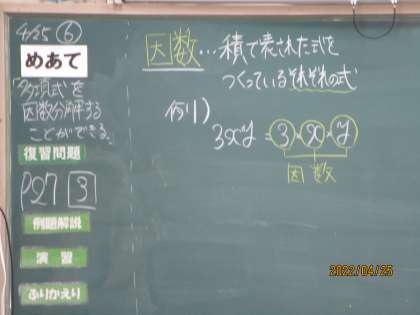 4/25 ⑥
めあて
「多項式」を
因数分解する
ことができる。
復習問題
P27 3
例題解説
演習
ふりかえり
因数…積で表された式を
つくっているそれぞれの式
例1)
3xy = 3×x×y
因数
2022/04/25